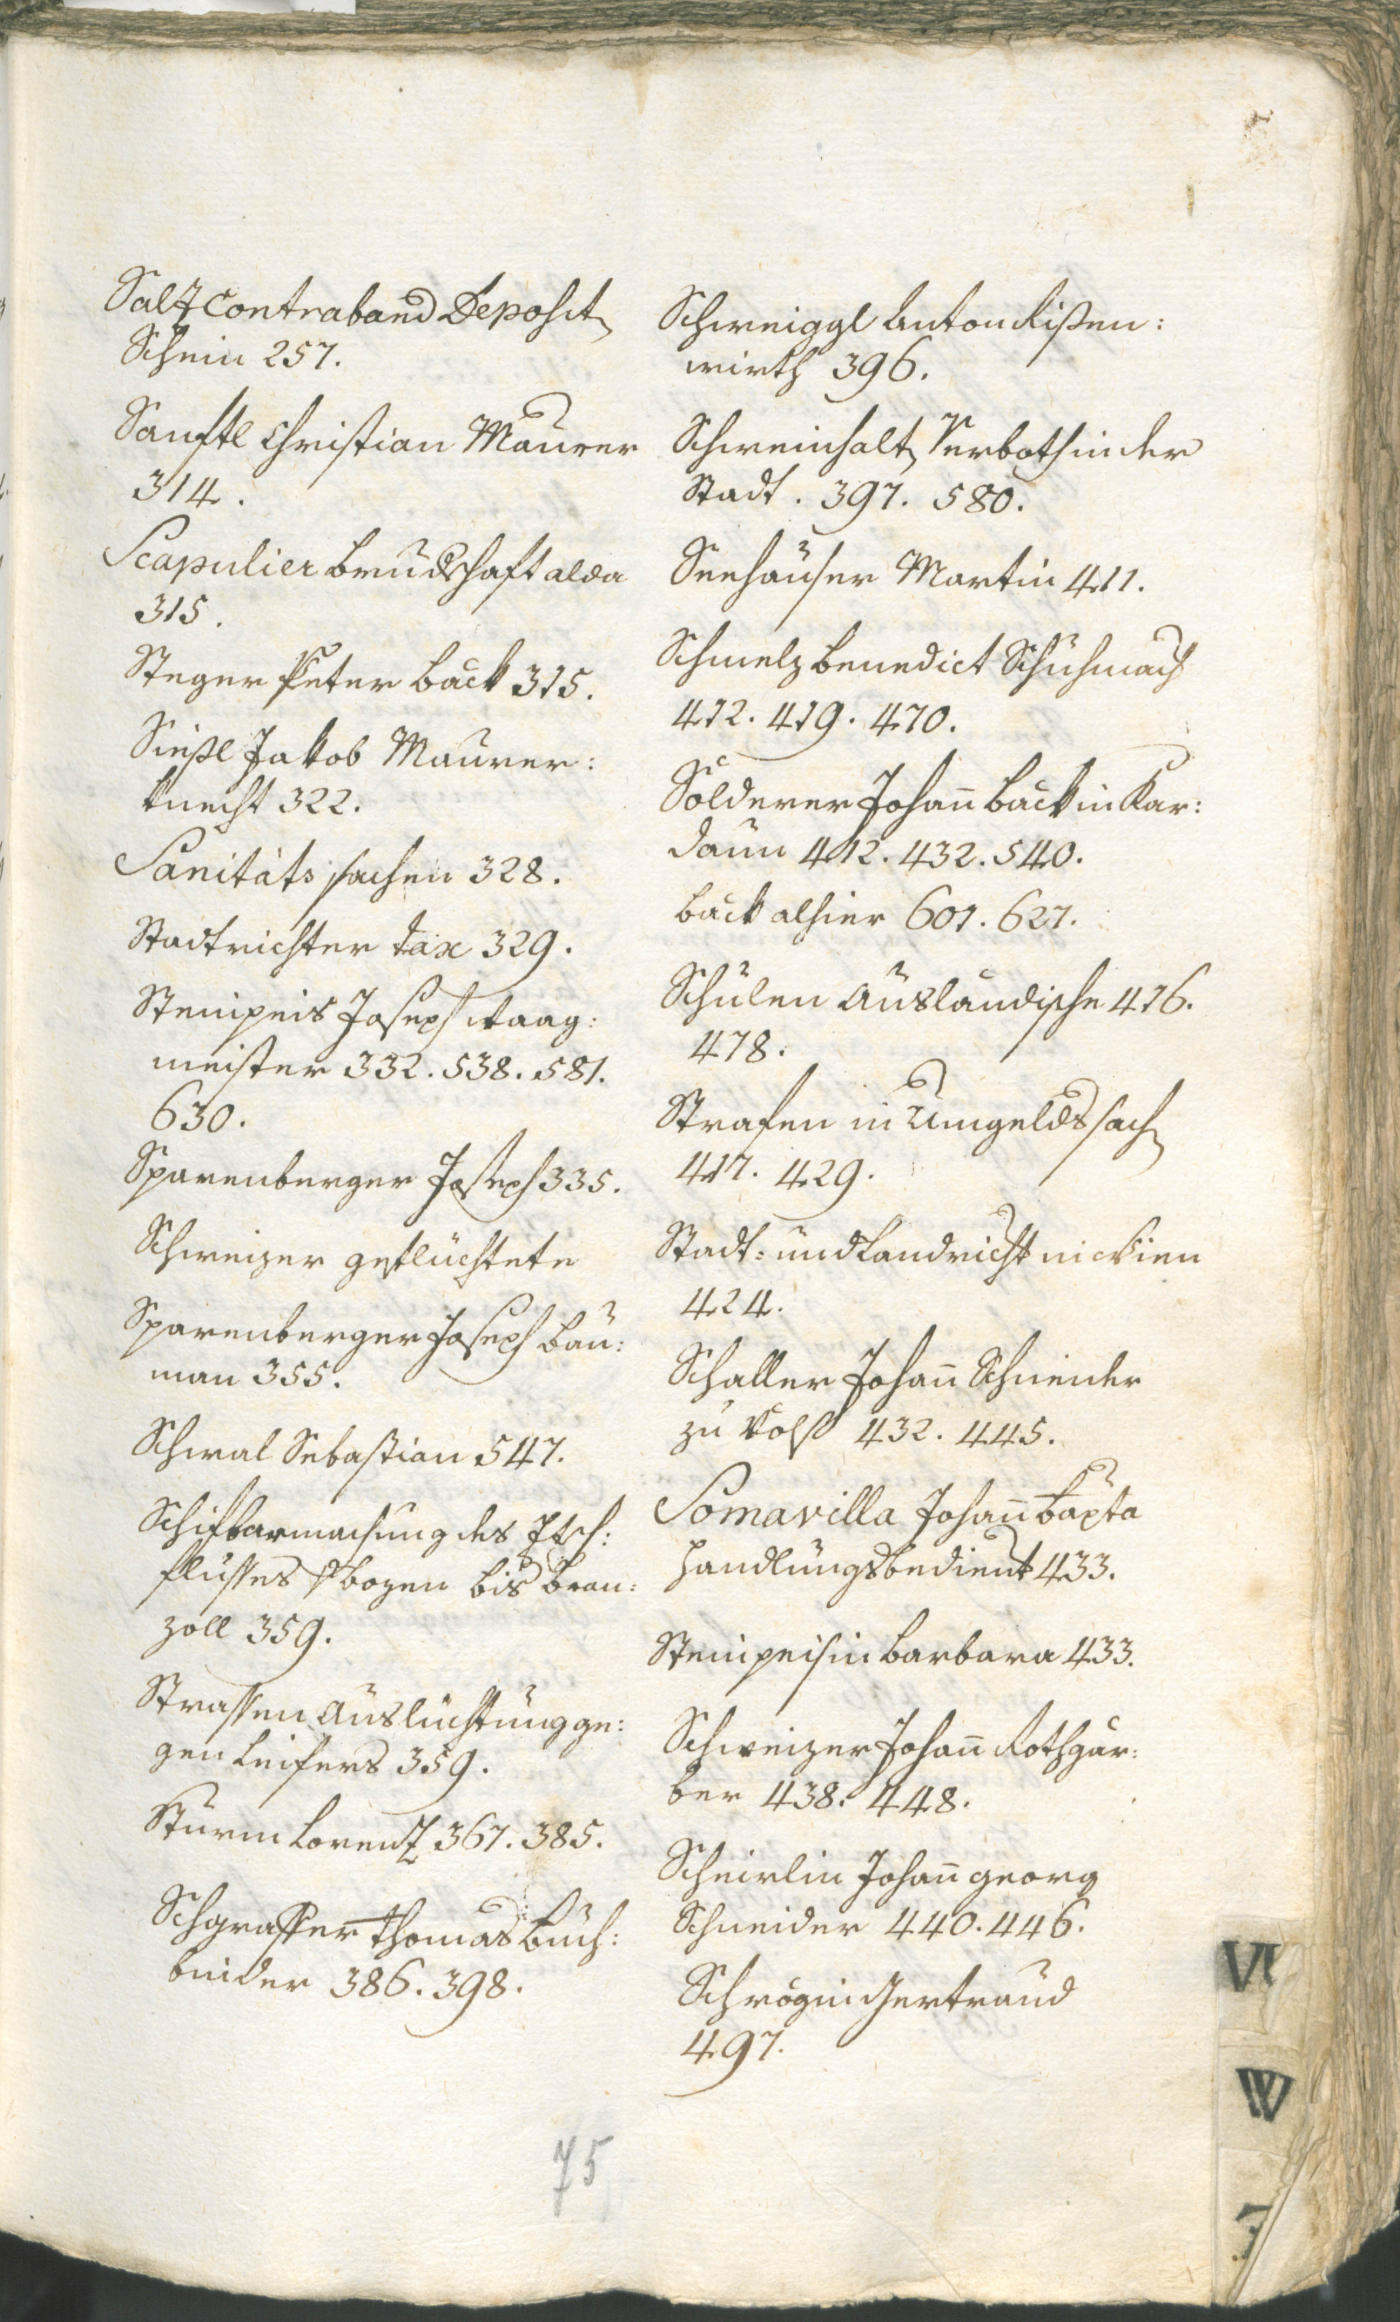 Salz Contraband Deposit
Schein 257.
Sanftl Christian Maurer
314.
Scapulier Brudschaft alda
315.
Steger Peter Bäck 315.
Sießl Jakob Maurer:
knecht 322.
Sanitäts sachen 328.
Stadtrichter tax 329.
Steinpeis Joseph Waag:
meister 332. 538. 581.
630.
Sparenberger Joseph 335.
Schweizer geflüchtete
Sparenberger Joseph Bau:
man 355.
Schwal Sebastian 547.
Schifbarmachung des Etsch:
flusses bozen bis Bran:
zoll 359.
Strassen Auslichtung ge:
gen Leifers 359.
Sturm Lorenz 367. 385.
Schgraffer Thomas Buch:
binder 386. 398.
Schweiggl Anton Rißen:
wirth 396.
Schweinhalt Verboth in der
Stadt. 397. 580.
Seehauser Martin 411.
Schmelz Benedict Schuhmach
412. 419. 470.
Solderer Johann Bäck in Kar:
daun 412. 432. 540.
Bäck alhier 601. 627.
Schulen Ausländische 416.
478.
Strafen in Umgelds sach
417. 429.
Stadt: und Landricht in Wien
424.
Schaller Johann Schneider
zu Vols 432. 445.
Somavilla Johann Bapta
Handlungsbedient 433.
Steinpeisin Barbara 433.
Schweizer Johann Rothgär:
ber 438. 448.
Scheirlin Johann Georg
Schneider 440. 446.
Schrögin Gertraud
497.
75
W